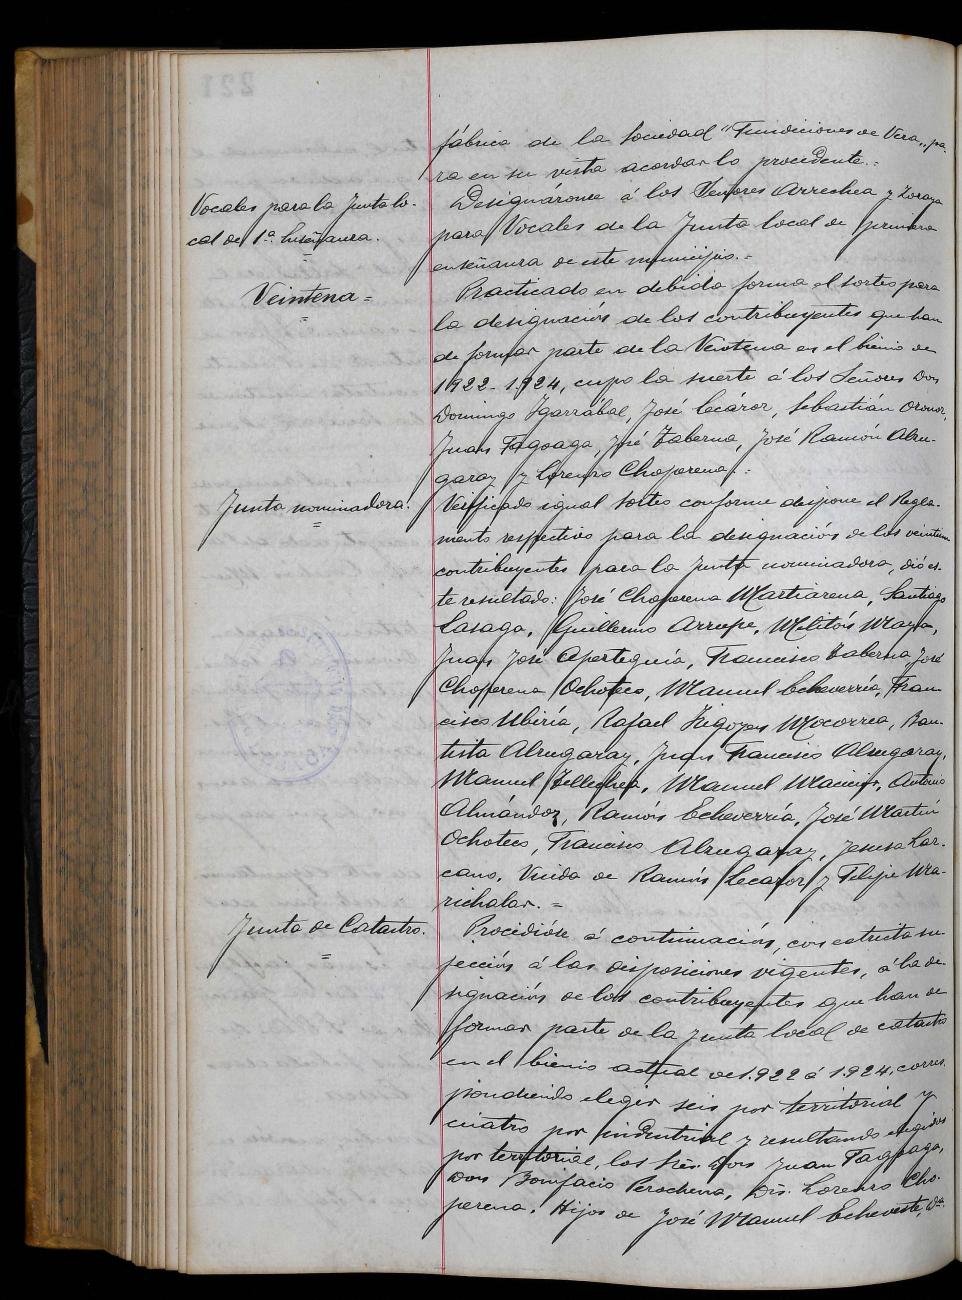 fábrica de la Sociedad "Fundiciones de Vera", pa-
ra en su vista acordar lo procedente.=
Vocales para la Junta lo-
cal de 1ª enseñanza.
=
Designáronse á los Señores Arrechea y Zoraya
para Vocales de la Junta local de primera
enseñanza de este municipio.=
Veintena=
=
Practicado en debida forma el sorteo para
la designación de los contribuyentes que han
de formar parte de la Veintena en el bienio de
1922-1.924, cupo la suerte á los Señores Don
Domingo Ygarrábal, José Lecároz, Sebastián Oronoz,
Juan Fagoaga, José Taberna, José Ramón Alzu-
garay y Lorenzo Choperena.=
Junta nominadora.
=
Verificado igual sorteo conforme dispone el Regla-
mento respectivo para la designación de los veintiun
contribuyentes para la Junta nominadora, dió es-
te resultado: José Choperena Martiarena, Santiago
Lasaga, Guillermo Arrupe, Melitón Maya,
Juan José Aperteguia, Francisco Taberna, José
Choperena Ochoteco, Manuel Echeverría, Fran-
cisco Ubiría, Rafael Yrigoyen Mocorrea, Bau-
tista Alzugaray, Juan Francisco Alzugaray,
Manuel Tellechea, Manuel Antonio
Almándoz, Ramón Echeverría, José Martín
Ochoteco, Francisco Alzugaray, Jesusa Lar-
cano, Viuda de Ramón Lecaroz y Felipe Ma-
richalar.=
Junta de Catastro.
=
Procedióse á continuación, con estricta su-
jeción á las disposiciones vigentes, á la de-
signación de los contribuyentes que han de
formar parte de la Junta local de catastro
en el bienio actual de 1.922 á 1.924, corres-
pondiendo elegir seis por territorial y
cuatro por industrial y resultando elegidos
por territorial, los Sres. Don Juan Fagoaga,
Don Bonifacio Perochena, Dn. Lorenzo Cho-
perena, Hijos de José Manuel Echeveste, Dn.